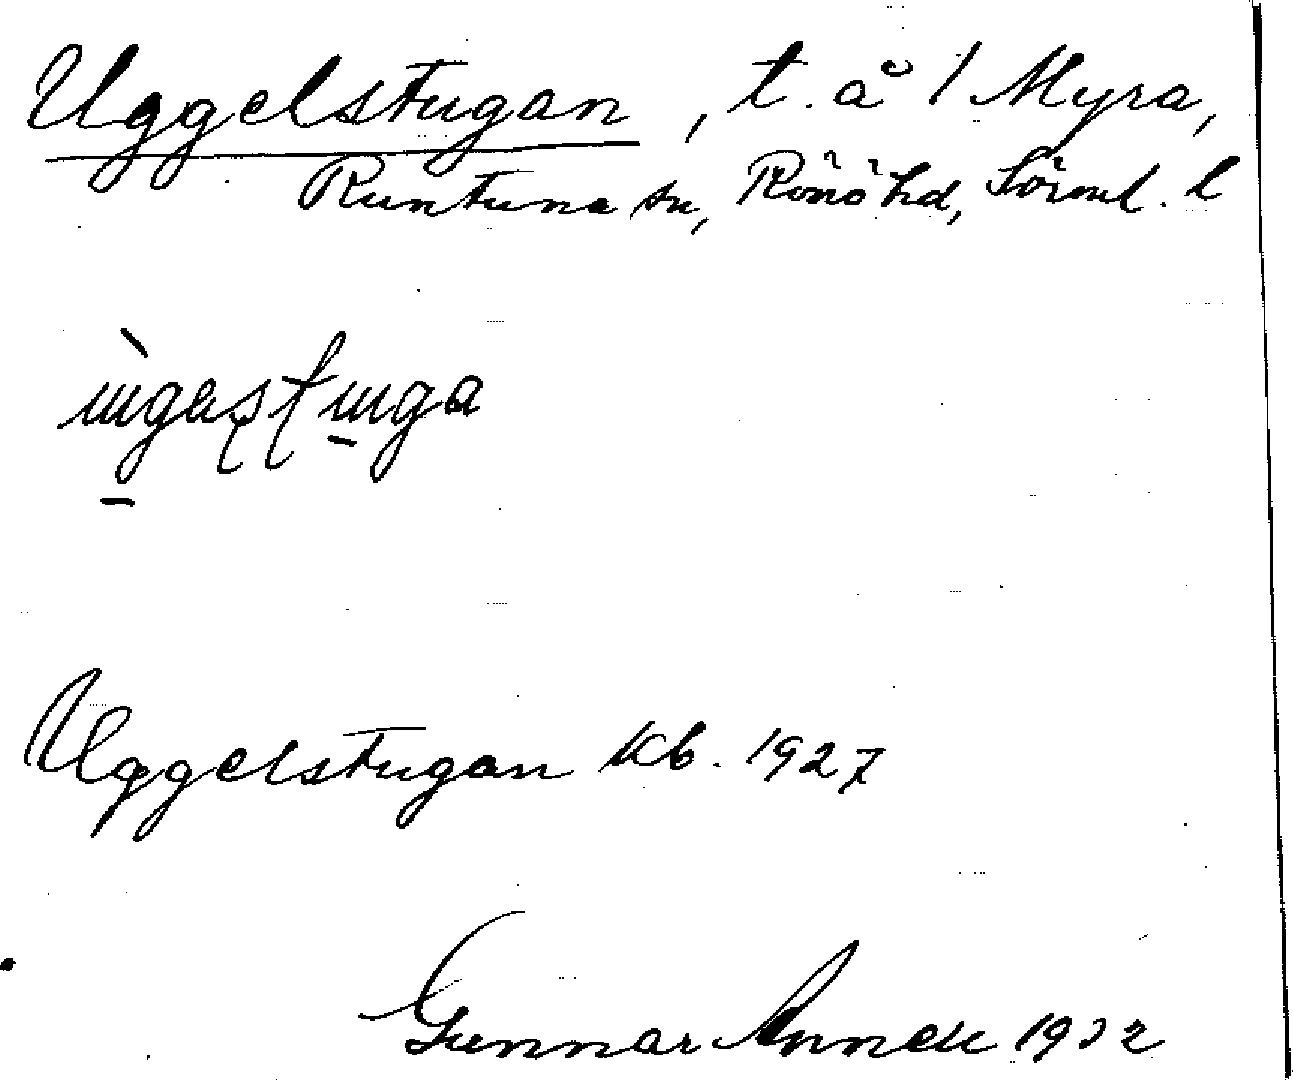 Uggelstugan, t. å 1 Myra,
Runtuna sn, Rönö hd, Sörml. l
Uggelstugan kb. 1927
Gunnar 1932